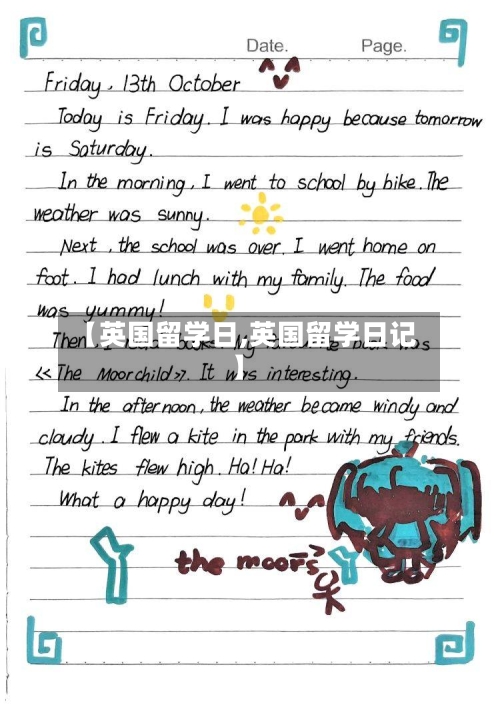 Date. Page.
Friday, 13th October
Today is Friday. I was happy because tomorrow
is Saturday.
In the morning, I went to school by bike. The
weather was sunny.
Next, the school was over. I went home on
foot. I had lunch with my family. The food
was yummy!
【英国留学日,英国留学日记
】
Then
<<The Moorchild>>. It was interesting.
In the afternoon, the weather became windy and
cloudy. I flew a kite in the park with my friends.
The kites flew high. Ha! Ha!
What a happy day!
the moors